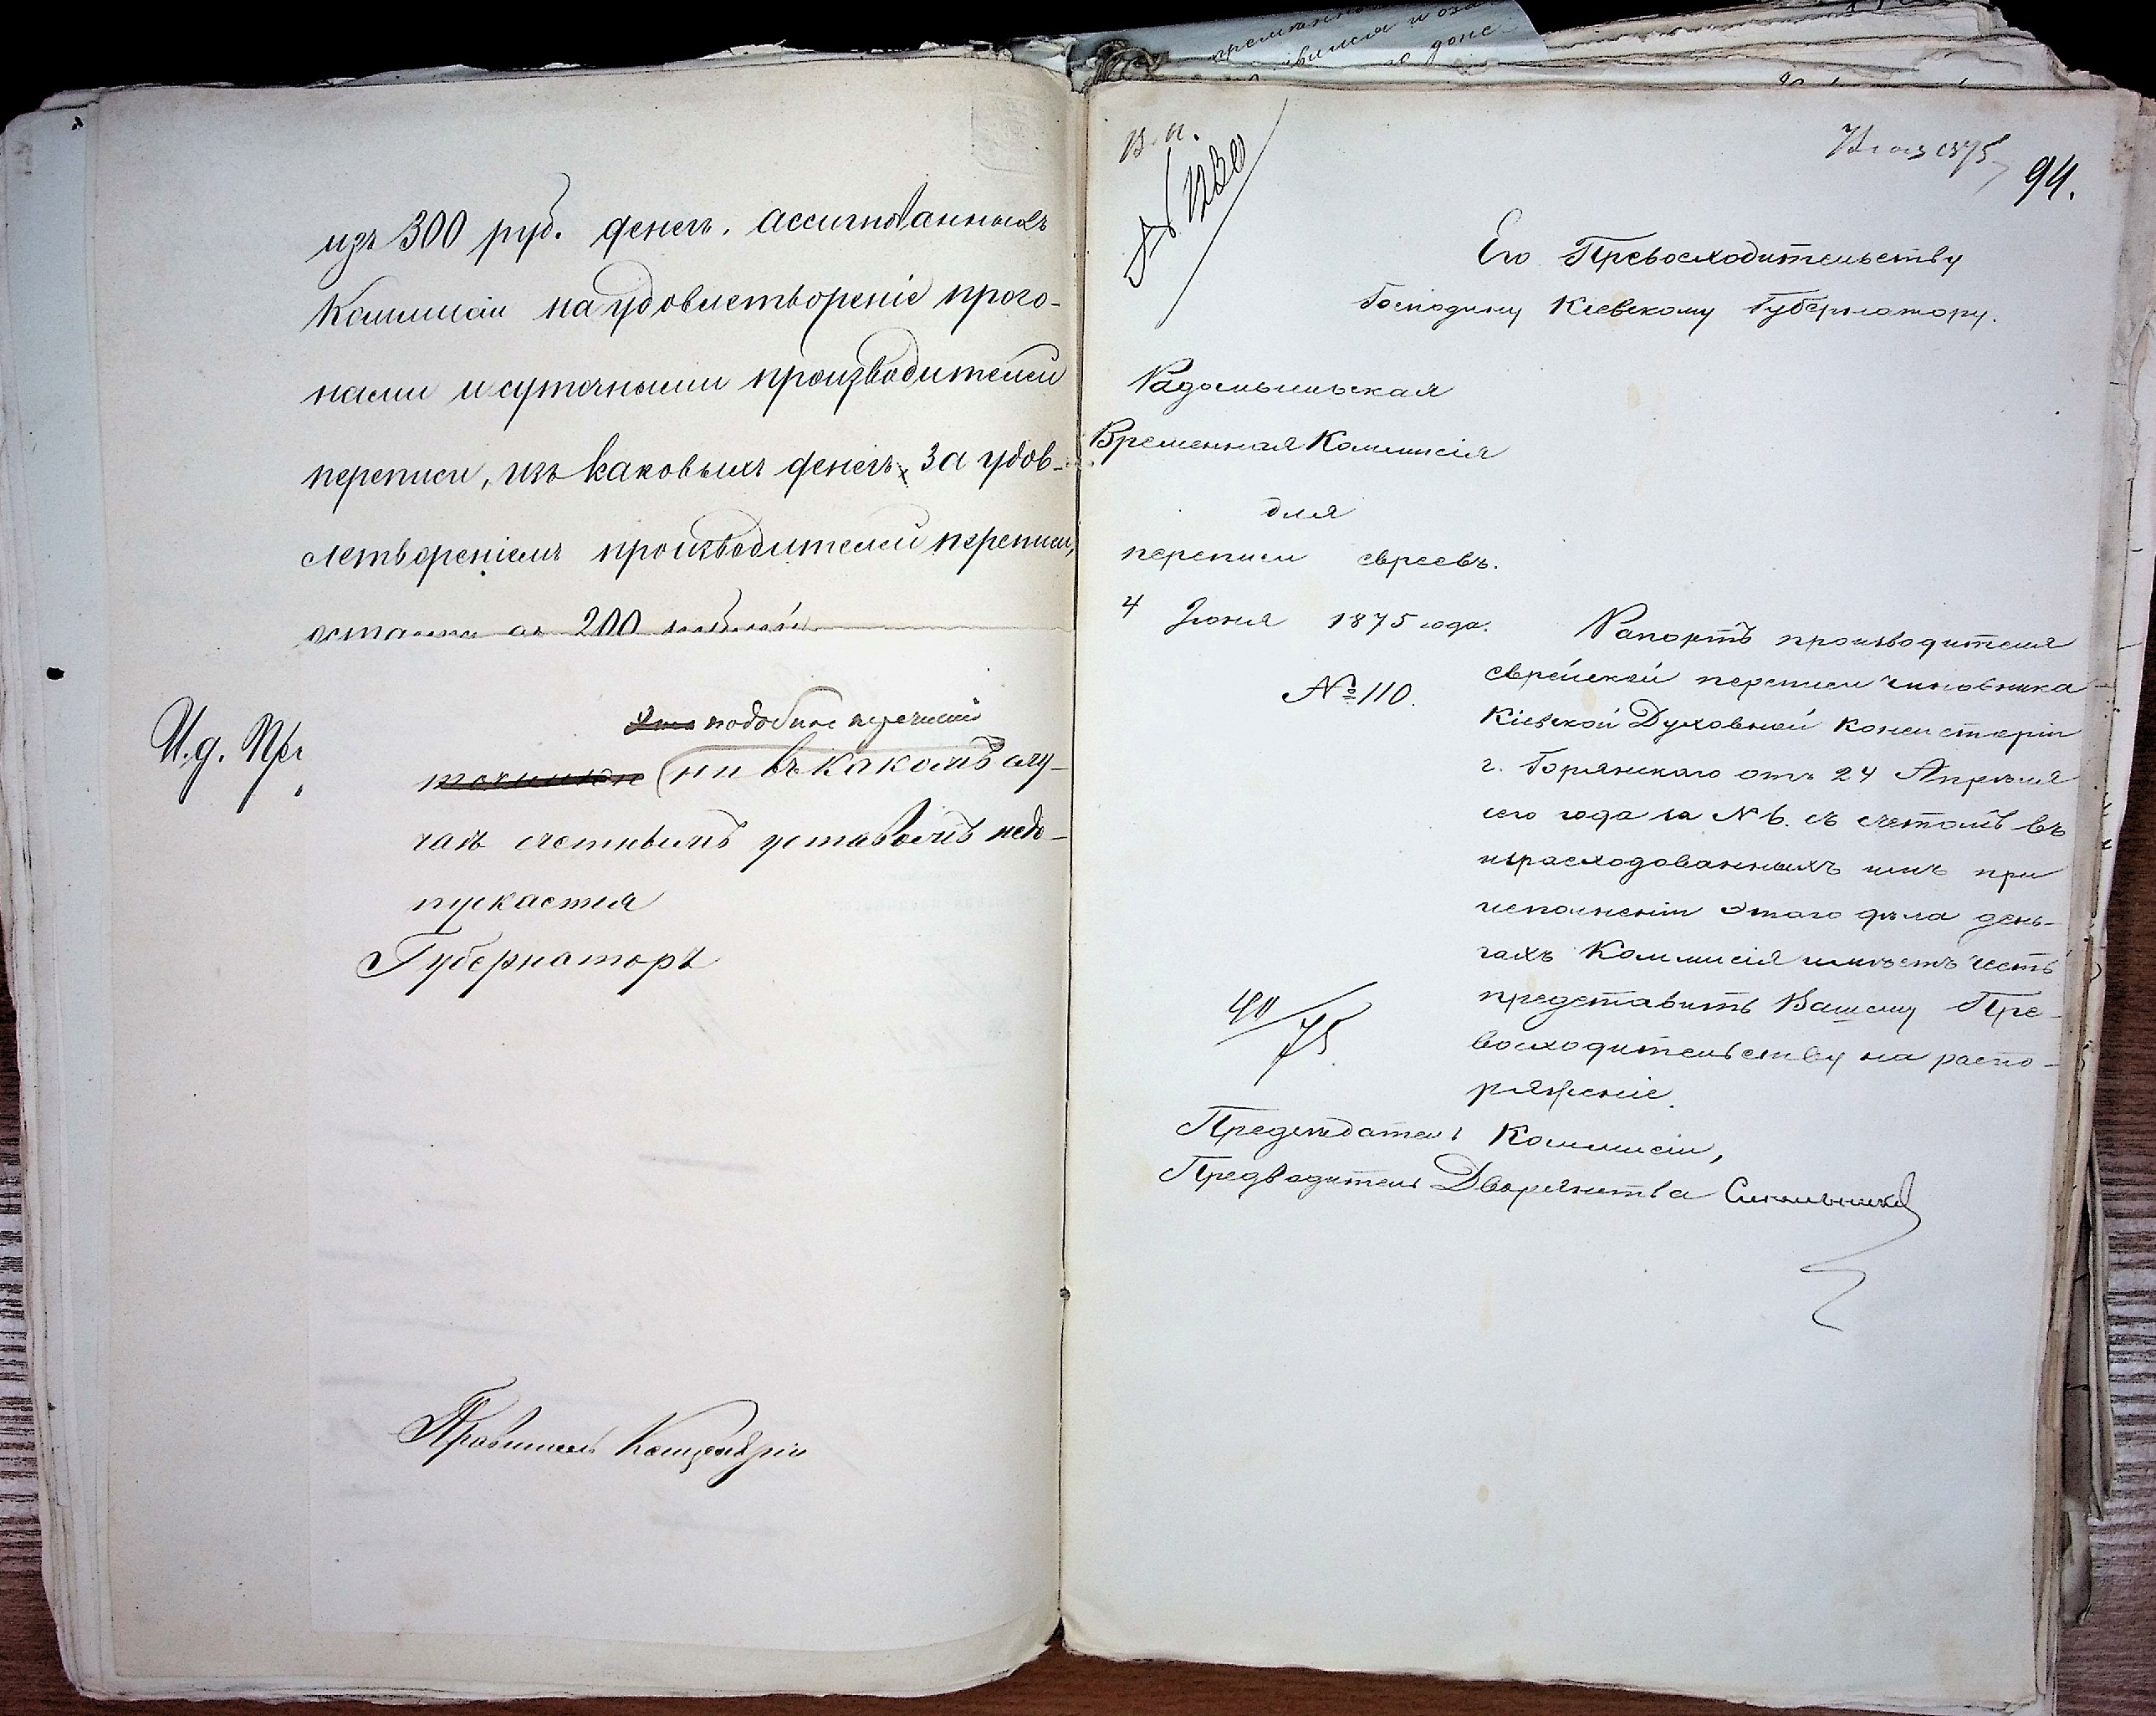 изъ 300 руб. денегъ, ассигнованныхъ
Коммисіи на удовлетвореніе прого-
нами и суточными производителей
переписи, изъ каковыхъ денегъ за удов-
летвореніемъ производителей переписи,
200 рублей
подобное
ни въ какомъ слу-
чаѣ счетнымъ уставомъ недо-
пускается
Губернаторъ
И. д.
Правитель Канцеляріи
В. П.
94.
Его Превосходительству
Господину Кіевскому Губернатору.
Радомысльская
Временная Коммисія
для
переписи евреевъ.
4 Іюня 1875 года.
№ 110.
Рапортъ производителя
еврейской переписи чиновника
Кіевской Духовной Консисторіи
г. Горянскаго отъ 24 Апрѣля
сего года за № 6. съ счетомъ въ
израсходованныхъ имъ при
исполненіи этого дѣла день-
гахъ Коммисія имѣетъ честь
представить Вашему Пре-
восходительству на распо-
ряженіе.
40/75
Предсѣдатель Коммисіи,
Предводитель Дворянства